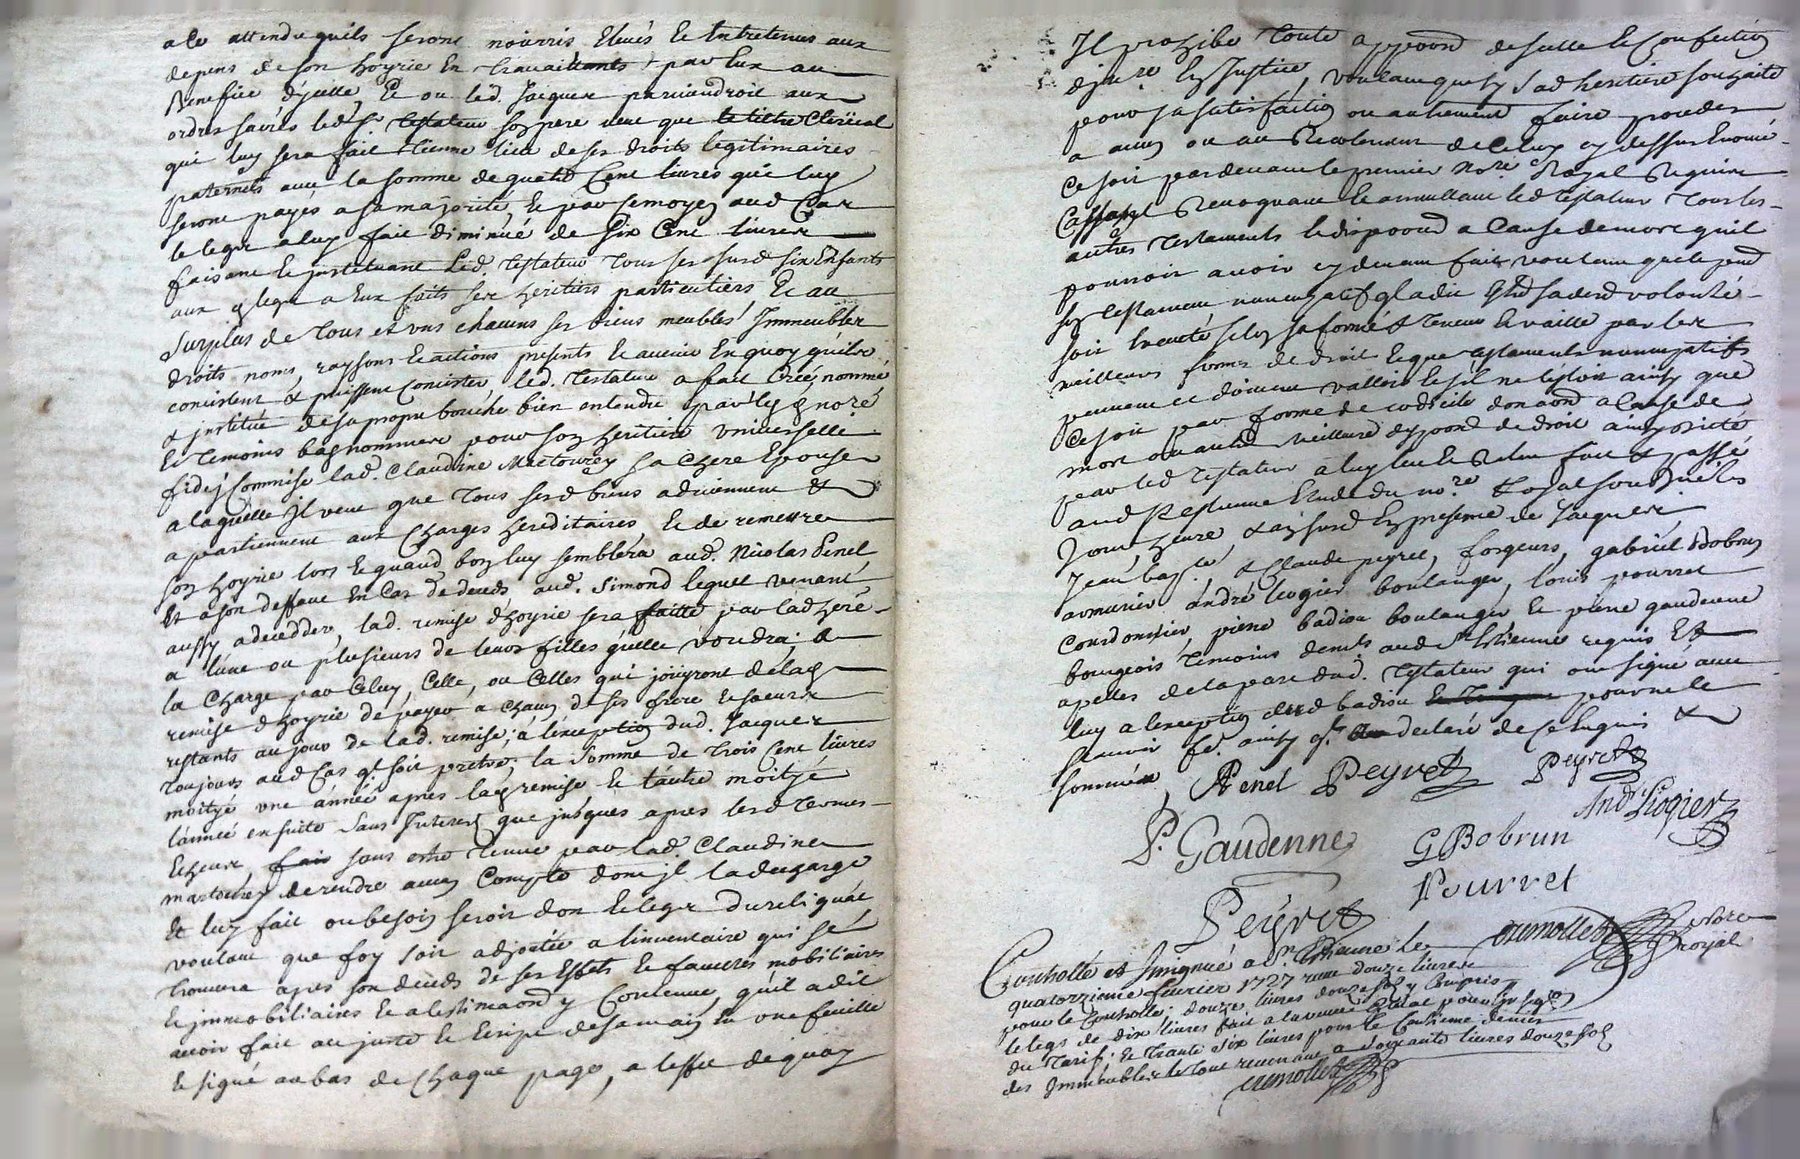 a ce attendu quils seront nourris, Elevés Et Entretenus aux
depens de son hoyrie En travaillants par Eux au
Benefice dycelle, Et ou led. Jacques parviendroit aux
ordres sacrés led. Sr. testateur son pere veut que le tiltre Clerical
qui luy sera fait tienne lieu de ses droits legitimaires
paternels avec la somme de quatre Cent livres qui luy
seront payés a sa majorité, Et par se moyen aud. Cas
le legat a luy fait diminué de Six Cent livres
faisant Et jnstituant Led. Testateur Tous ses susd. six Enfants
aux legats a Eux faits ses heritiers particuliers Et au
Surplus de Tous et uns chacuns ses biens meubles Jmmeubles
droits noms, raysons Et actions presents Et avenir En quoy quils
concistent & puissent Concister, led. Testateur a fait Créé, nommé
& jnstitué de sa propre bouche bien entendu par les no.re
Et Temoins bas nommes pour son heritiere universelle
fidej Commise lad. Claudine Martourey sa Chere Epouse
a laquelle Jl veut que Tous sesd. biens adviennent &
apartiennent aux Charges hereditaires Et de remettre
son hoyrie lors Et quand bon luy semblera aud. Nicolas Penel
Et a son deffaut En Cas de deceds aud. Simond lequel venant
aussy a decedder, lad. remise dhoyrie sera faitte par lad. here-
a lune ou plusieurs de leurs filles quelle voudra; a
la Charge par Celuy, Celle, ou Celles qui jouyront de la
remise dhoyrie de payer a chacun de ses frere Et soeurs
restants au jour de lad. remise; a lexception dud. Jacques
Toujours aud. Cas ql. soit pretre; la Somme de Trois Cent livres
moityé une année apres la remise Et lautre moityé
lannée ensuite Sans Jnterest que jusques apres lesd. Termes
Echeux, sans estre Tenue par lad. Claudine
martourey de rendre aucun Compte dont jl la decharge
Et luy fait ou besoin seroit don Et legat du reliquat
voulant que foy soit adjoutée a linventaire qui se
Trouvera apres son deceds de ses Effets Et facultés mobiliaires
Et jmmobiliaires Et a lestimaon y Contenue, quil a dit
avoir fait au juste Et Ecript de sa main En une feuille
Et signé au bas de Chaque page, a leffet de quoy
Jl prohibe Toute apposon de scelle Et Confection
djnre. En Justice, voulant que sy sad. heritiere souhaite
pour sa satisfaction ou autrement faire proceder
a aucun ou au Recolement de Celuy cy dessus Enoncé
Ce soit par devant le premier no.re Royal Requis
Cassant Revoquant Et annullant led. testateur Tous les
autres Testaments Et disposon a Cause de mort quil
pourroit avoir cy devant faits voulant que le pnt
son Testament nuncupatif ql a dit Estre sa dere volonté
soit Executé selon sa forme & teneur Et vaille par les
meilleures formes de droit Et que testaments nuncupatifs
peuvent et doivent valloir Et sil ne lestoit ainsy que
Ce soit par forme de codicile donaon a Cause de
mort ou autre meilleure disposon de droit ainsy dicté
par led. Testateur a luy leu Et Releu fait & passé
aud. St. Estienne Etude du no.re Royal soussigné les
Jour, heure, & an susd. En presence de Jacques
Jean bap.te & Claude peyret, forgeurs, gabriel Bobrun
armurier, andré liogier boulanger, louis pourret
Cordonnier, pierre badiou boulanger Et pierre gaudenne
bourgeois Temoins demts. aud. St. Etienne requis Et
apelles de la part dud. Testateur qui ont signé avec
luy a lexception dud. badiou pour ne le
scavoir fe. ainsy ql. a declaré de ce Enquis &
sommé, Penel Peyret Peyret
And. Liogier
P. Gaudenne G Bobrun
Pourret
Peÿret
Crumollet Nore
royal
Conttrollé et Jnsignué a St. Etienne le
quatorzieme fevrier 1727 reçu douze livres
pour le Conttrolle; douze livres douze sols y Compris
le legs de dix livres fait a la veuve
du Tarif; Et Trante Six livres pour le Centieme denier
des Jmmeubles le tout revenant a soixante livres douze sols
Crumollet